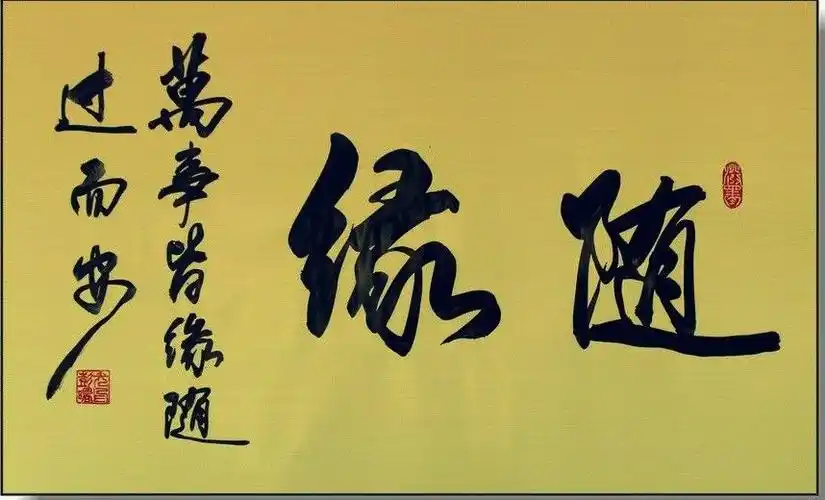 随缘
萬事皆缘随
过而安